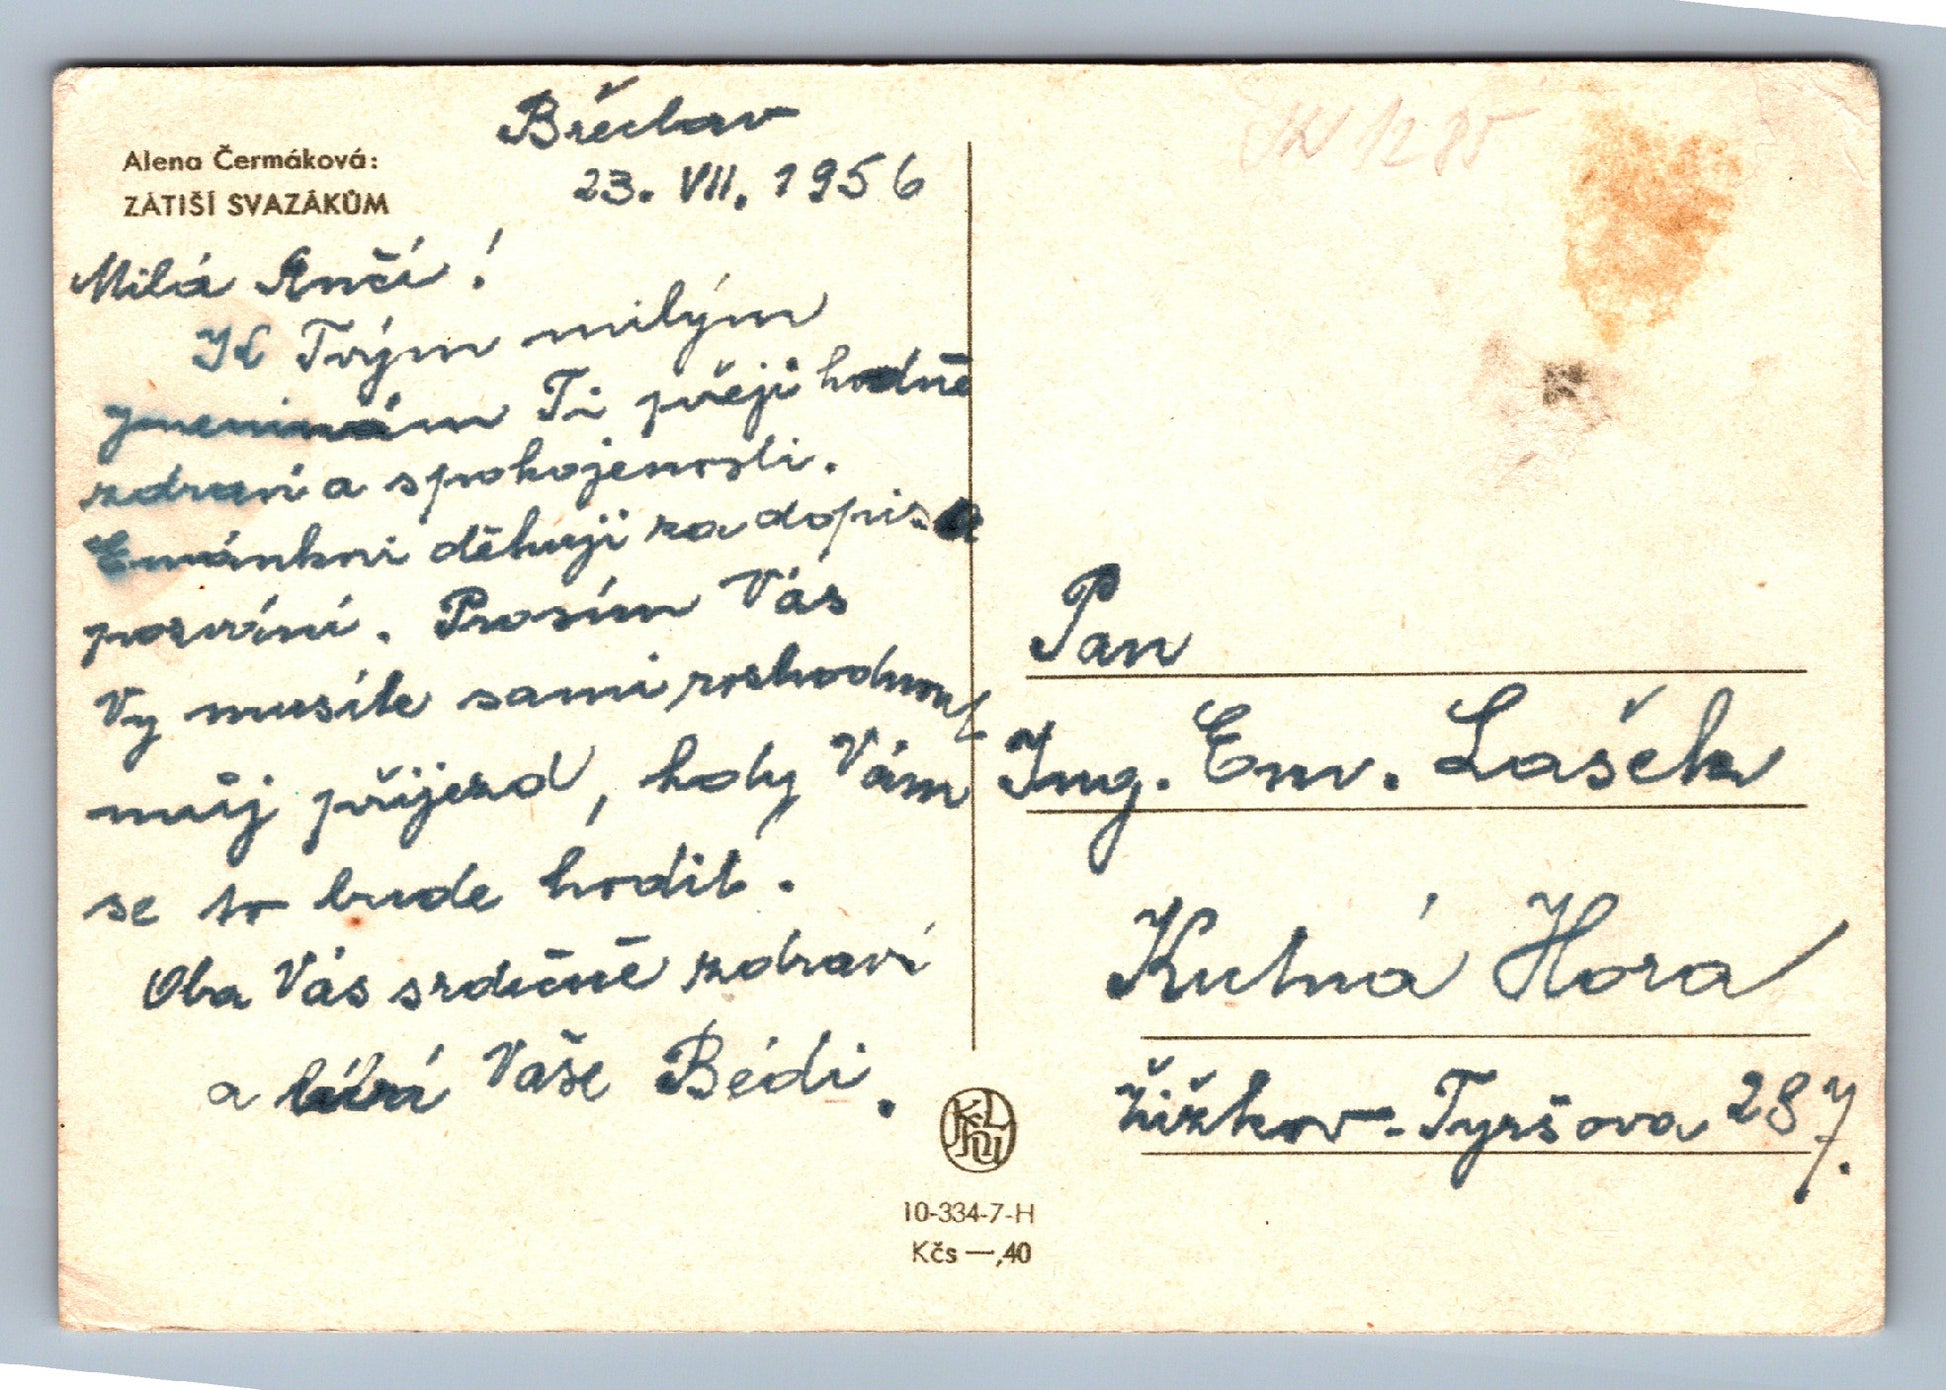 Alena Čermáková:
ZÁTIŠÍ SVAZÁKŮM
Břeclav
23. VII. 1956
Milá Anči!
K Tvým milým
jmeninám Ti přeji hodně
zdraví a spokojenosti.
Emánkovi děkuji za dopis a
pozvání. Prosím Vás
Vy musíte sami rozhodnout
můj příjezd, kdy Vám
se to bude hodit.
Oba Vás srdečně zdraví
a líbá Vaše Bédi.
JK 1285
Pan
Ing. Em. Lašek
Kutná Hora
Žižkov - Tyršova 287.
10-334-7-H
Kčs —,40